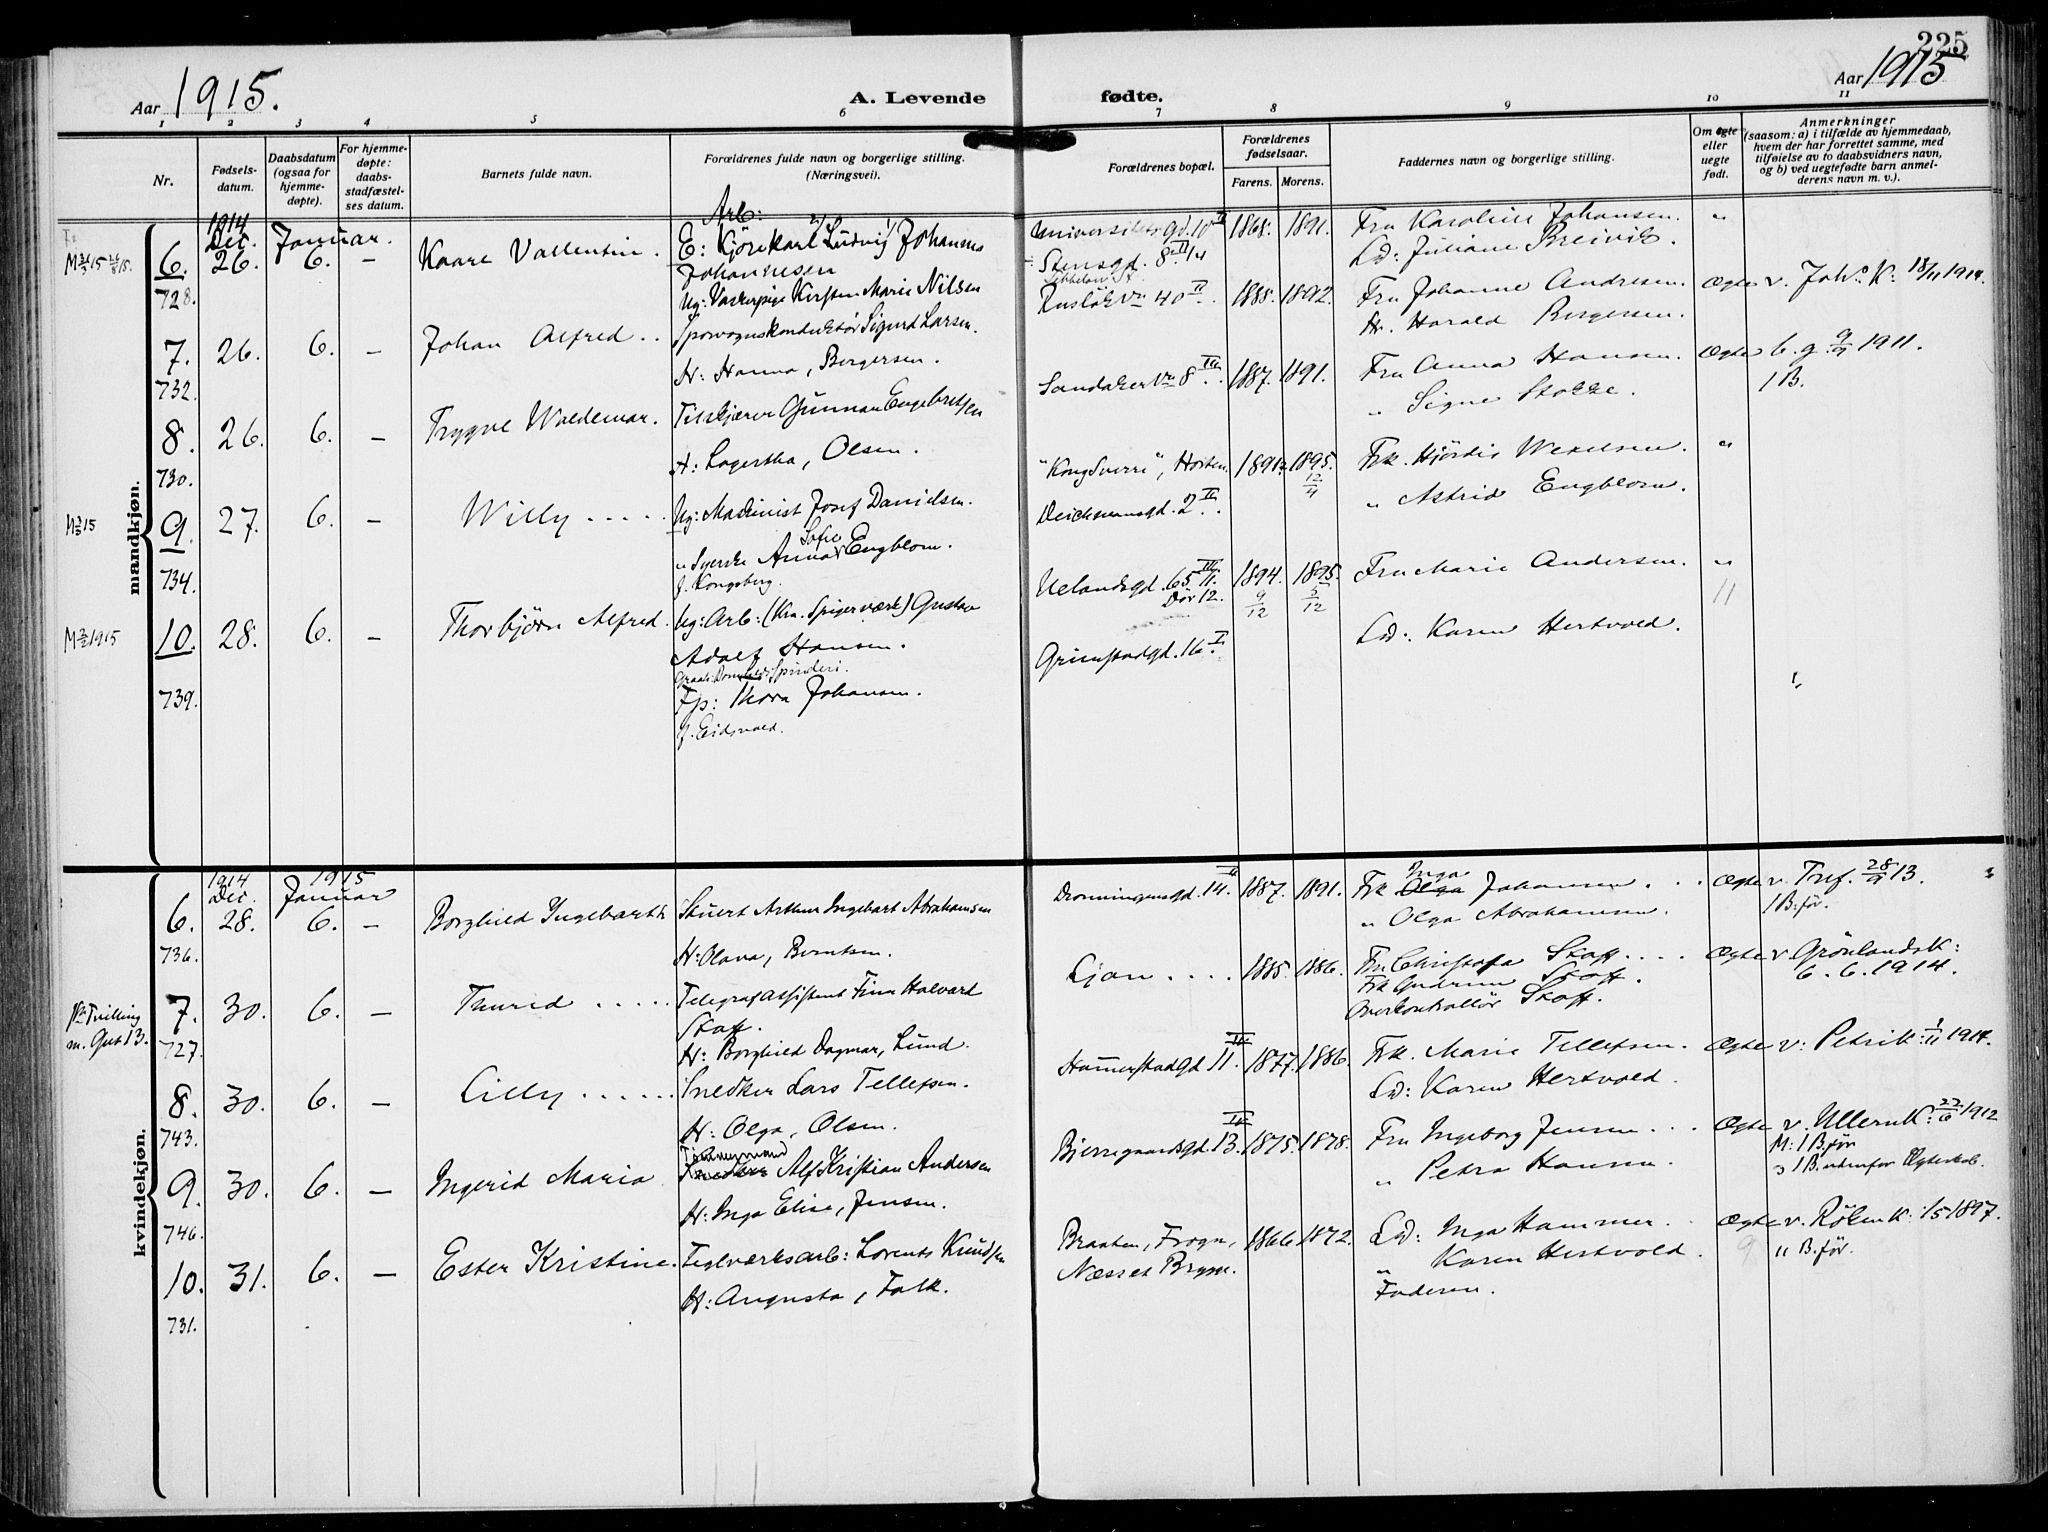 225
Aar 1915.
A. Levende fødte.
Aar 1915
1 2 3 4 5 6 7 8 9 10 11
Nr.
Fødsels-
datum.
Daabsdatum
(ogsaa for
hjemme-
døpte).
For hjemme-
døpte:
daabs-
stadfæstel-
ses datum.
Barnets fulde navn.
Forældrenes fulde navn og borgerlige stilling.
(Næringsvei).
Forældrenes bopæl.
Forældrenes
fødselsaar.
Farens. Morens.
Faddernes navn og borgerlige stilling.
Om egte
eller
uegte
født.
Anmerkninger
(saasom: a) i tilfælde av hjemmedaab,
hvem der har forrettet samme, med
tilføielse av to daabsvidners navn,
og b) ved uegtefødte barn anmel-
derens navn m. v.).
mandkjøn.
1914
Dec. Januar.
6. 26. 6. – Kaare Vallentin.
728.
Arb:
E: Kjørekarl Ludvig Johannes
Johannesen
Ug: Vaskerpige Kirsten Marie Nilsen
Universitetsgd. 10 II 1868. 1891.
Stensgd. 8 II
Fru Karoline Johansen. "
Ld: Juliane Breivik.
7. 26. 6. – Johan Alfred ..
732.
Sporvognskonduktør Sigurd Larsen.
H: Hanna, Bergersen.
40 II. 1888. 1892.
Fru Johanne Andresen.
Hr. Harald Bergersen.
Ægte v. Joh.s K: 18/11 1914.
8. 26. 6. – Trygve Waldemar.
730.
Tilskjærer Gunnar Engebretsen
H: Lagertha, Olsen.
Sandakervn 8 III.. 1887. 1891.
Fru Anna Hansen.
" Signe Stokke.
Ægte b. g. 9/9 1911.
1 B.
9. 27. 6. – Willy .....
734.
Ug: Maskinist Josef Danielsen.
" Syerske Anna Sofie Engblom.
f. Kongsberg.
"Kong Sverre", Horten. 1891. 1895.
12/4
Deichmansgd. 2 II..
Frk. Hjördis Wexelsen "
" Astrid Engblom.
10. 28. 6. – Thorbjörn Alfred.
739.
Ug: Arb: (Kra. Spigerværk) Gustav
Adolf Hansen.
Fp: Thora Johansen.
f. Eidsvold.
Uelandsgd. 65 II. 1894. 1895.
Dör 12. 9/12 5/12
Grimstadgd. 16 I.
Fru Marie Andersen. "
11
Ld: Karen Hertvold.
kvindekjøn.
1914 1915
Dec. Januar
6. 28. 6. – Borghild Ingebarth
736.
Stuert Arthur Ingebart Abrahamsen
H: Olava, Berntsen.
Dronningensgd. 14. II 1887. 1891.
Frk Inga Johansen ...
" Olga Abrahamsen.
Ægte v. Tref. 28/9 13.
1 B. før.
Tvilling
7. 30. 6. – Thurid .....
727.
Telegrafassistent Finn Halvard
Skaff.
H: Borghild Dagmar, Lund.
Ljan .... 1885. 1886.
Fru Christofa Skaff ....
Frk Gudrun Skaff.
Overkontrollör Skaff.
Ægte v Grönlandsk:
6. 6. 1914.
8. 30. 6. – Lilly ......
743.
Snedker Lars Tellefsen.
H: Olga, Olsen.
Hammerstadgd 11. IV 1877. 1886.
Frk. Marie Tellefsen.
Ld: Karen Hertvold.
Ægte v: Petrik: 1/11 1914.
9. 30. 6. – Ingerid Maria
746.
Tömmermand
Alf Kristian Andersen
H: Inga Elise, Jensen.
Bjerregaardsgd. 13. IV 1875. 1878.
Fru Ingeborg Jensen ...
" Petra Hansen.
Ægte v. Ullernk: 22/6 1912
M: 1 B. før
1 B. udenfor Ægteskab.
10. 31. 6. – Ester Kristine.
731.
Teglverksarb: Lorents Knudsen
H: Augusta, Falk.
Braaten, Frogn, 1866 1872.
Næsset Brygge.
Ld: Inga Hammer.
" Karen Hertvold.
Faderen.
Ægte v. Rökenk: 15 1897.
9 11 B. før.